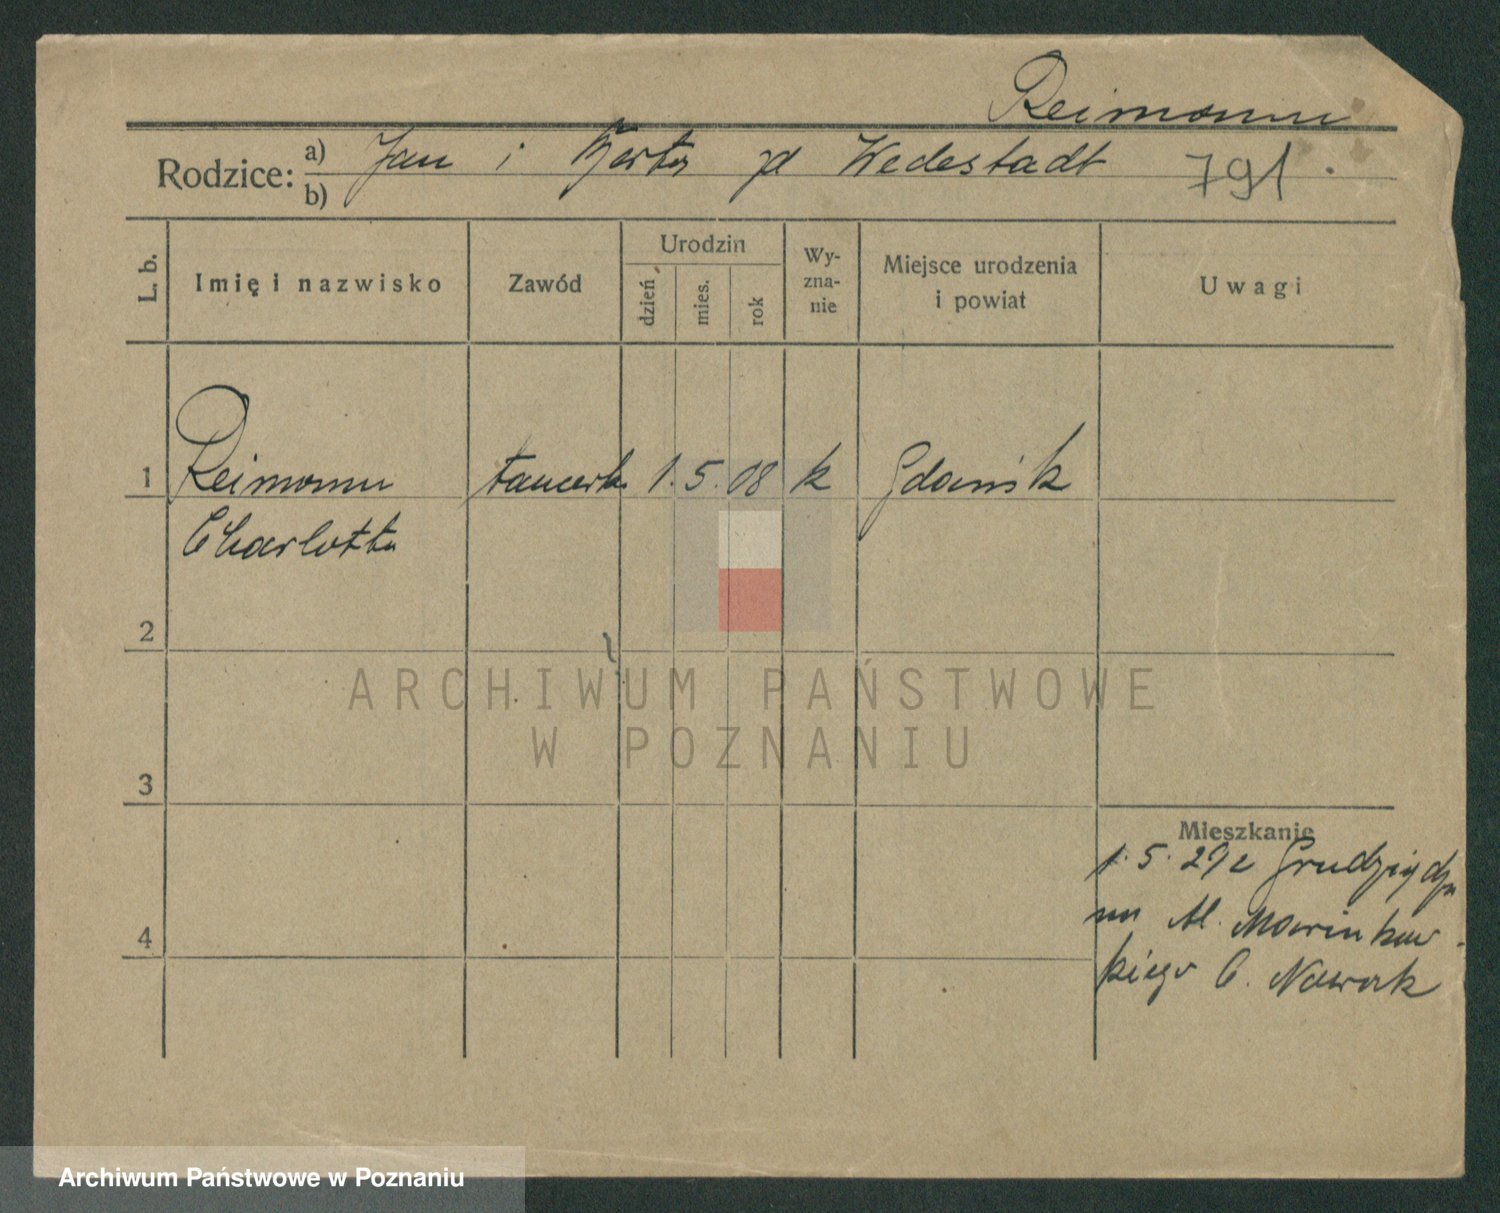 Reimann
Rodzice: a) Jan i Berta zd Wedestadt 791.
b)
L. b. Imię i nazwisko Zawód Urodzin dzień mies. rok Wyznanie Miejsce urodzenia i powiat Uwagi
1 Reimann tancerka 1. 5. 08 k Gdańsk
Charlotta
2
ARCHIWUM PAŃSTWOWE
W POZNANIU
3
Mieszkanie
1. 5. 29 z
Al. Marcinkow-
4
kiego Nowak
Archiwum Państwowe w Poznaniu